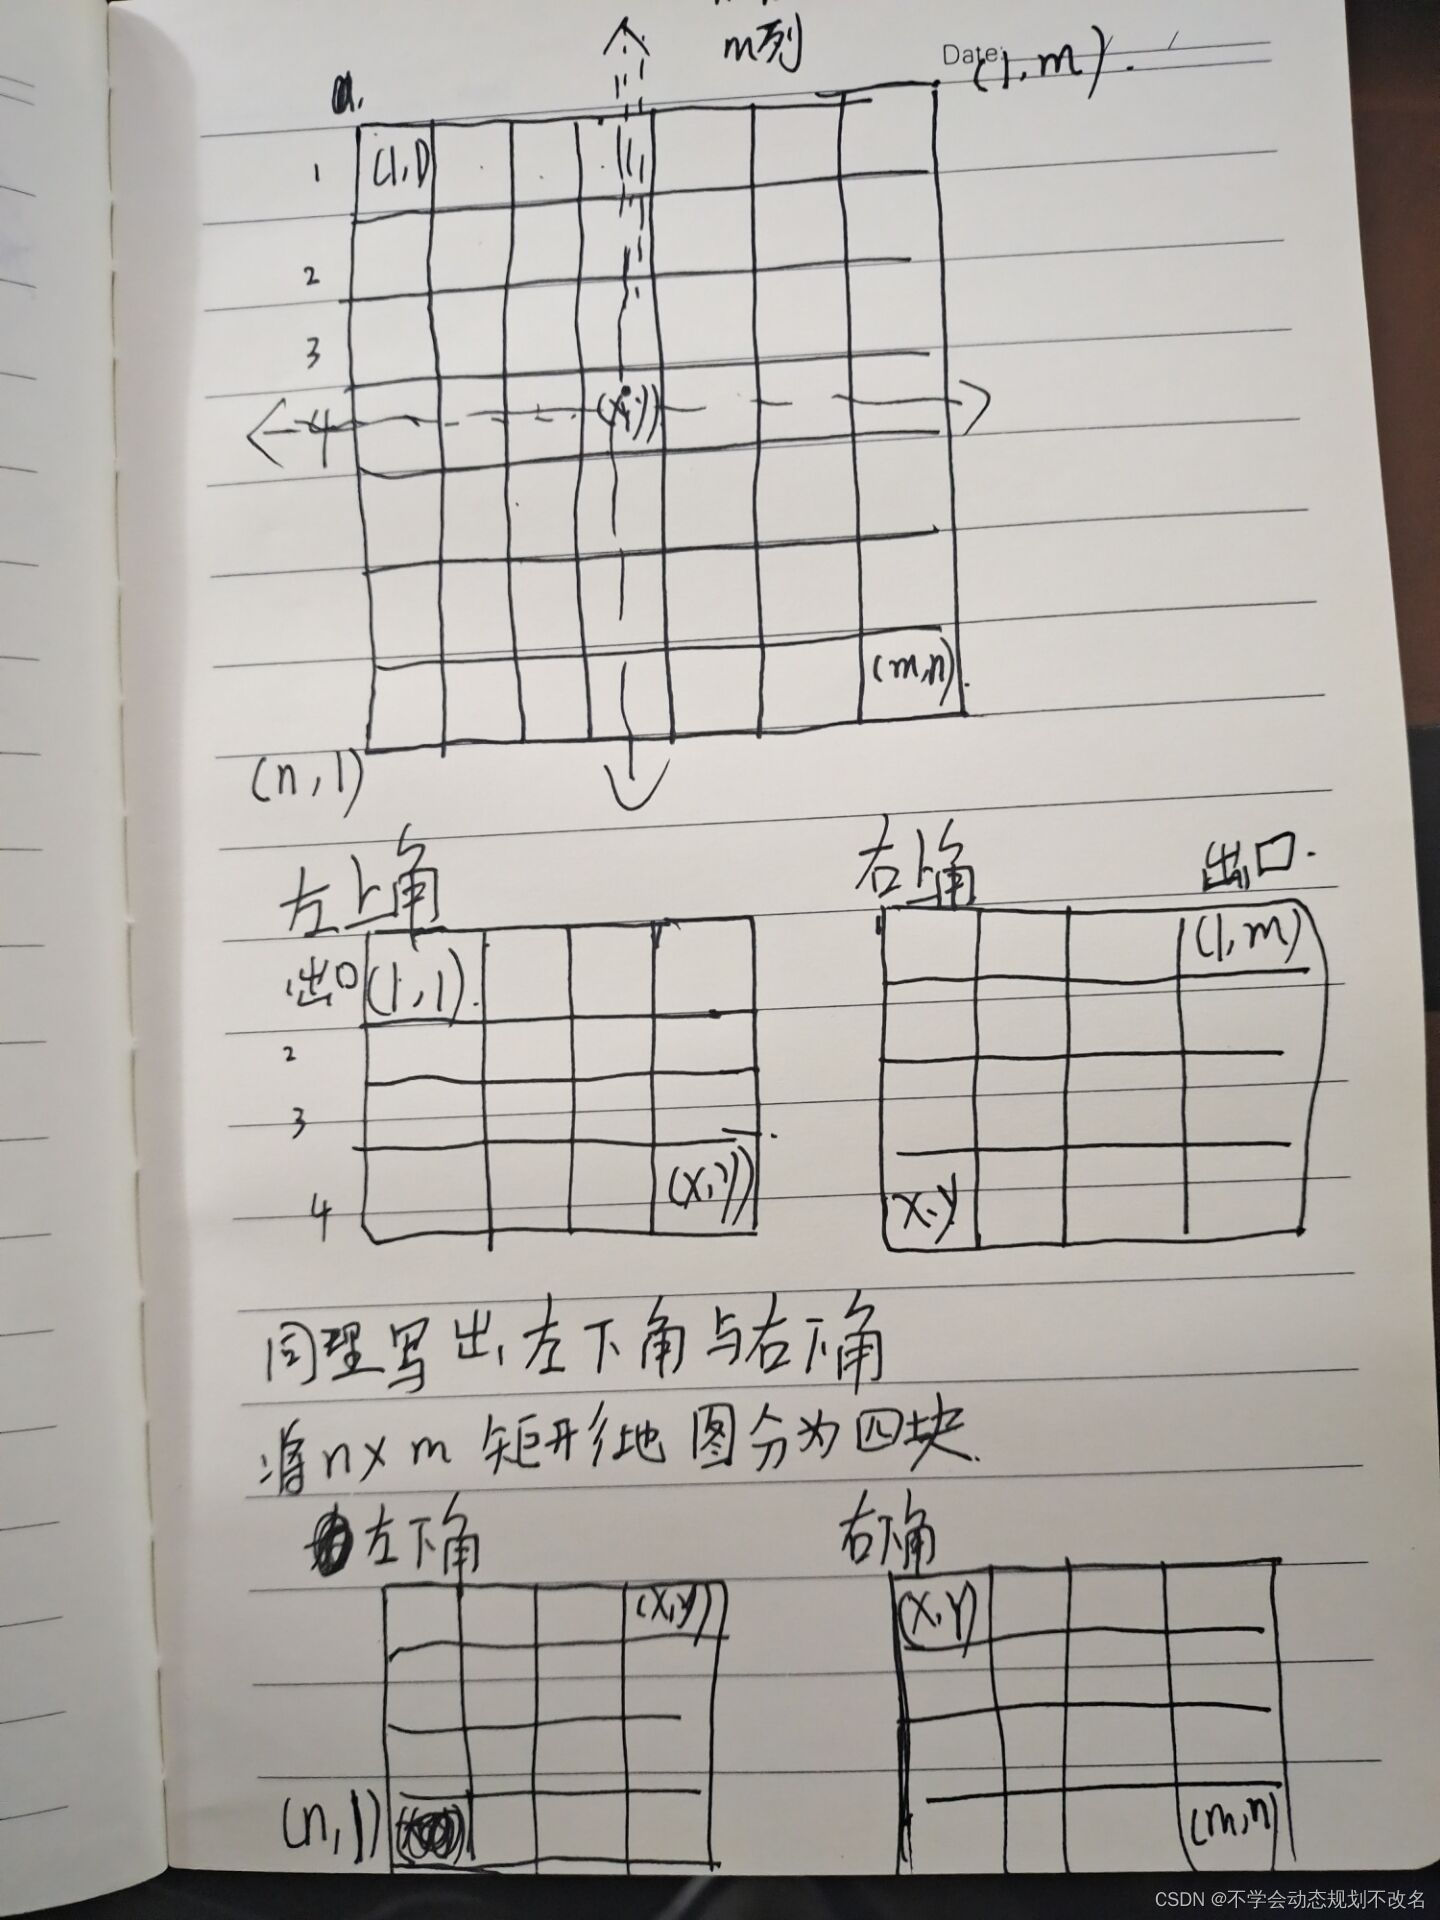 m列
Date:
(1,m).
a.
1
(1,1)
2
3
4
(x,y)
(m,n).
(n,1)
左上角
右上角
出口.
出口
(1,1).
(1,m)
2
3
(x,y)
4
x.y
同理写出左下角与右下角
将n×m矩形地图分为四块.
左下角
右下角
(x,y)
(x,y)
(n,1)
(m,n)
CSDN @不学会动态规划不改名